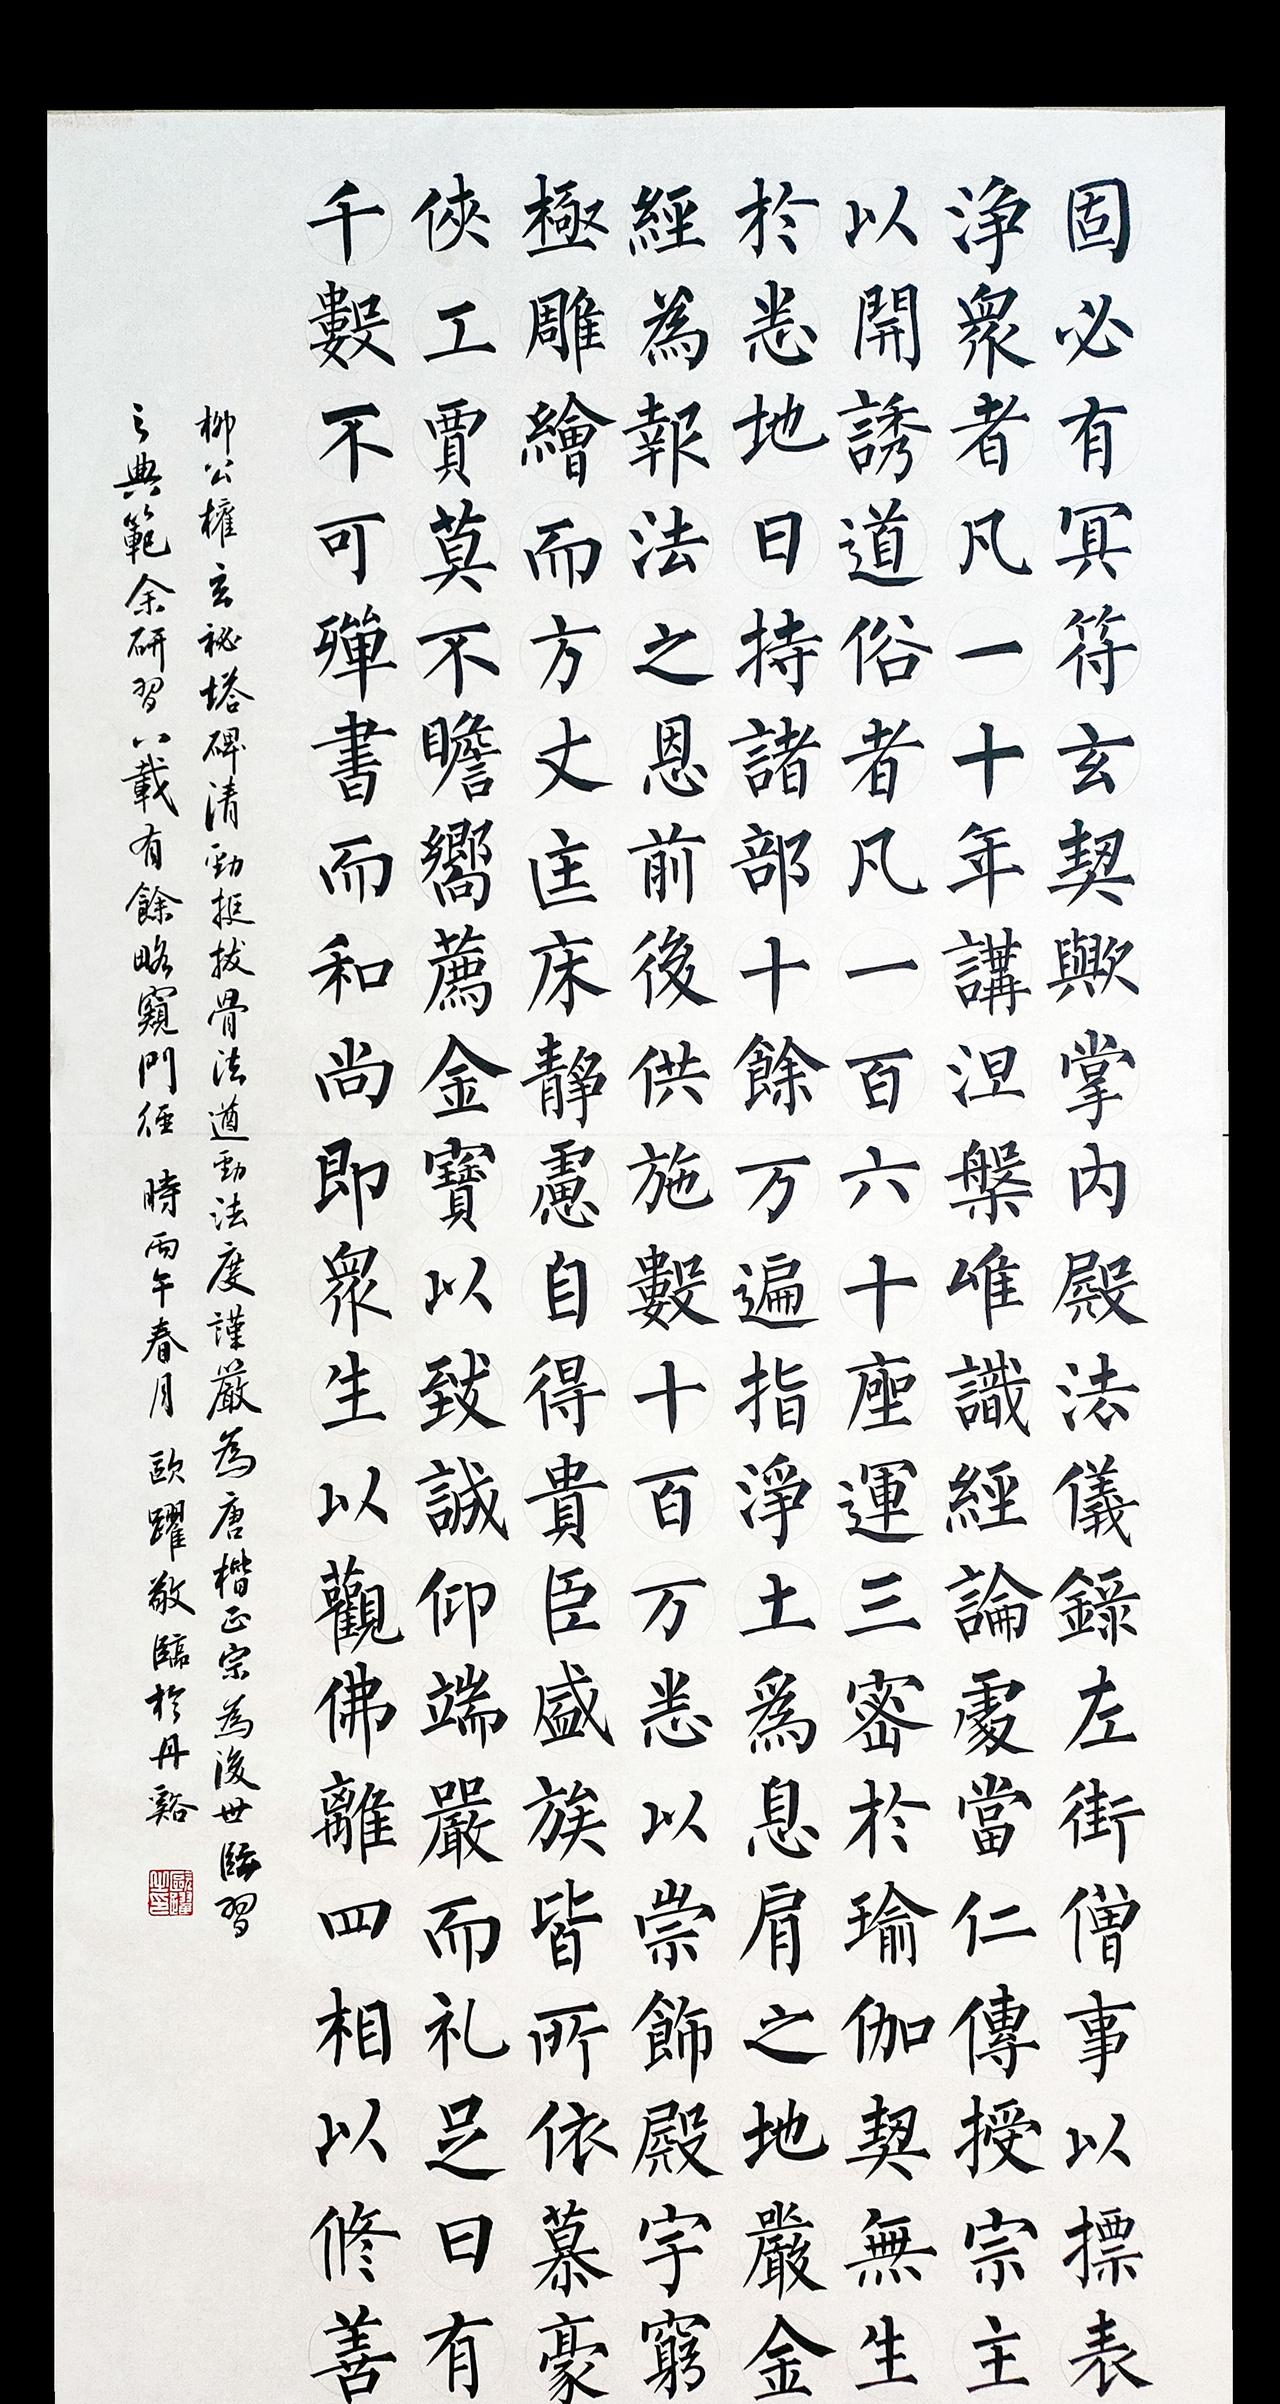 固必有冥符玄契歟掌内殿法儀錄左街僧事以摽表
淨衆者凡一十年講涅槃唯識經論處當仁傳授宗主
以開誘道俗者凡一百六十座運三密於瑜伽契無生
於悉地日持諸部十餘万遍指淨土為息肩之地嚴金
經為報法之恩前後供施數十百万悉以崇飾殿宇窮
極雕繪而方丈匡床靜慮自得貴臣盛族皆所依慕豪
俠工賈莫不瞻嚮薦金寶以致誠仰端嚴而礼足日有
千數不可殫書而和尚即衆生以觀佛離四相以修善
柳公權玄祕塔碑清勁挺拔骨法遒勁法度謹嚴為唐楷正宗為後世臨習
之典範余研習八載有餘略窺門徑 時丙午春月 歐躍敬臨於丹谿